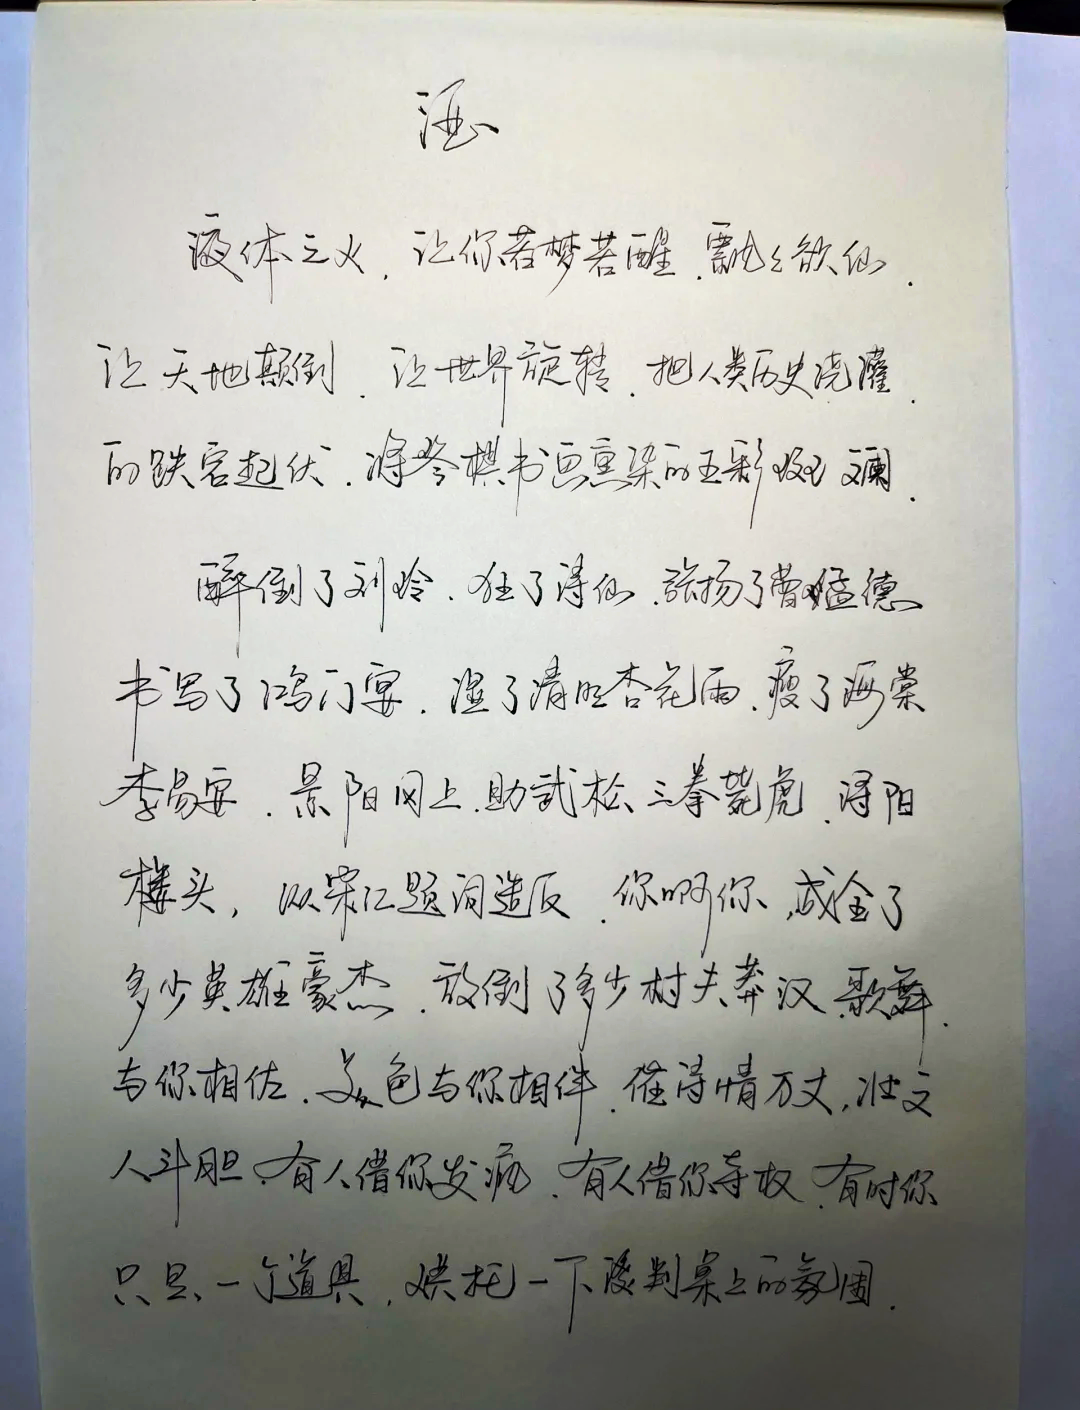 酒
液体之火，让你若梦若醒，飘飘欲仙.
让天地颠倒，让世界旋转，把人类历史浇灌
的跌宕起伏，将琴棋书画熏染的五彩斑斓.
醉倒了刘伶，狂了诗仙，张扬了曹孟德
书写了鸿门宴，湿了清明杏花雨，瘦了海棠
李易安，景阳冈上，助武松三拳毙虎，浔阳
楼头，以宋江题词造反，你啊你，成全了
多少英雄豪杰，放倒了多少村夫莽汉，歌舞
与你相佐，美色与你相伴，催诗情万丈，壮文
人斗胆，有人借你发疯，有人借你夺权，有时你
只是一个道具，烘托一下谈判桌上的氛围.